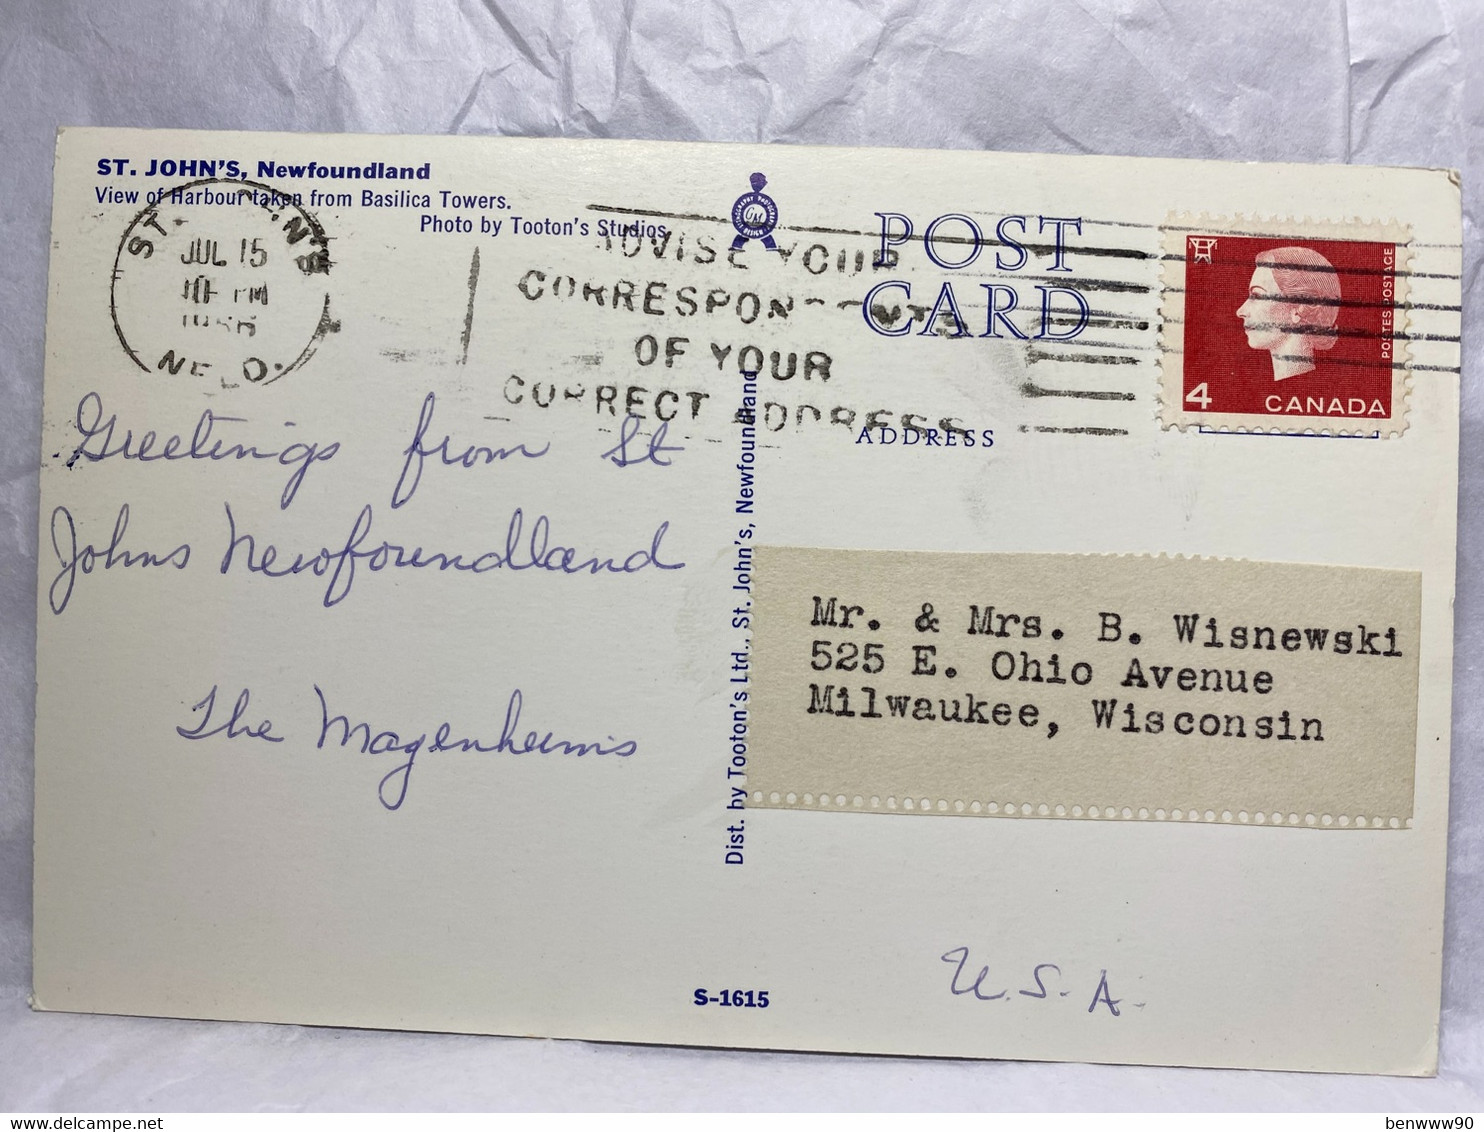 ST. JOHN'S, Newfoundland
View of Harbour taken from Basilica Towers.
Photo by Tooton's Studios
ST. JOHN'S
JUL 15
PM
NFLD.
ADVISE YOUR
CORRESPONDENTS
OF YOUR
CORRECT ADDRESS
POST
CARD
ADDRESS
POSTES POSTAGE
4 CANADA
Greetings from St
Johns Newfoundland
The Magenheims
Dist. by Tooton's Ltd., St. John's, Newfoundland
Mr. & Mrs. B. Wisnewski
525 E. Ohio Avenue
Milwaukee, Wisconsin
U.S.A.
S-1615
benwww90